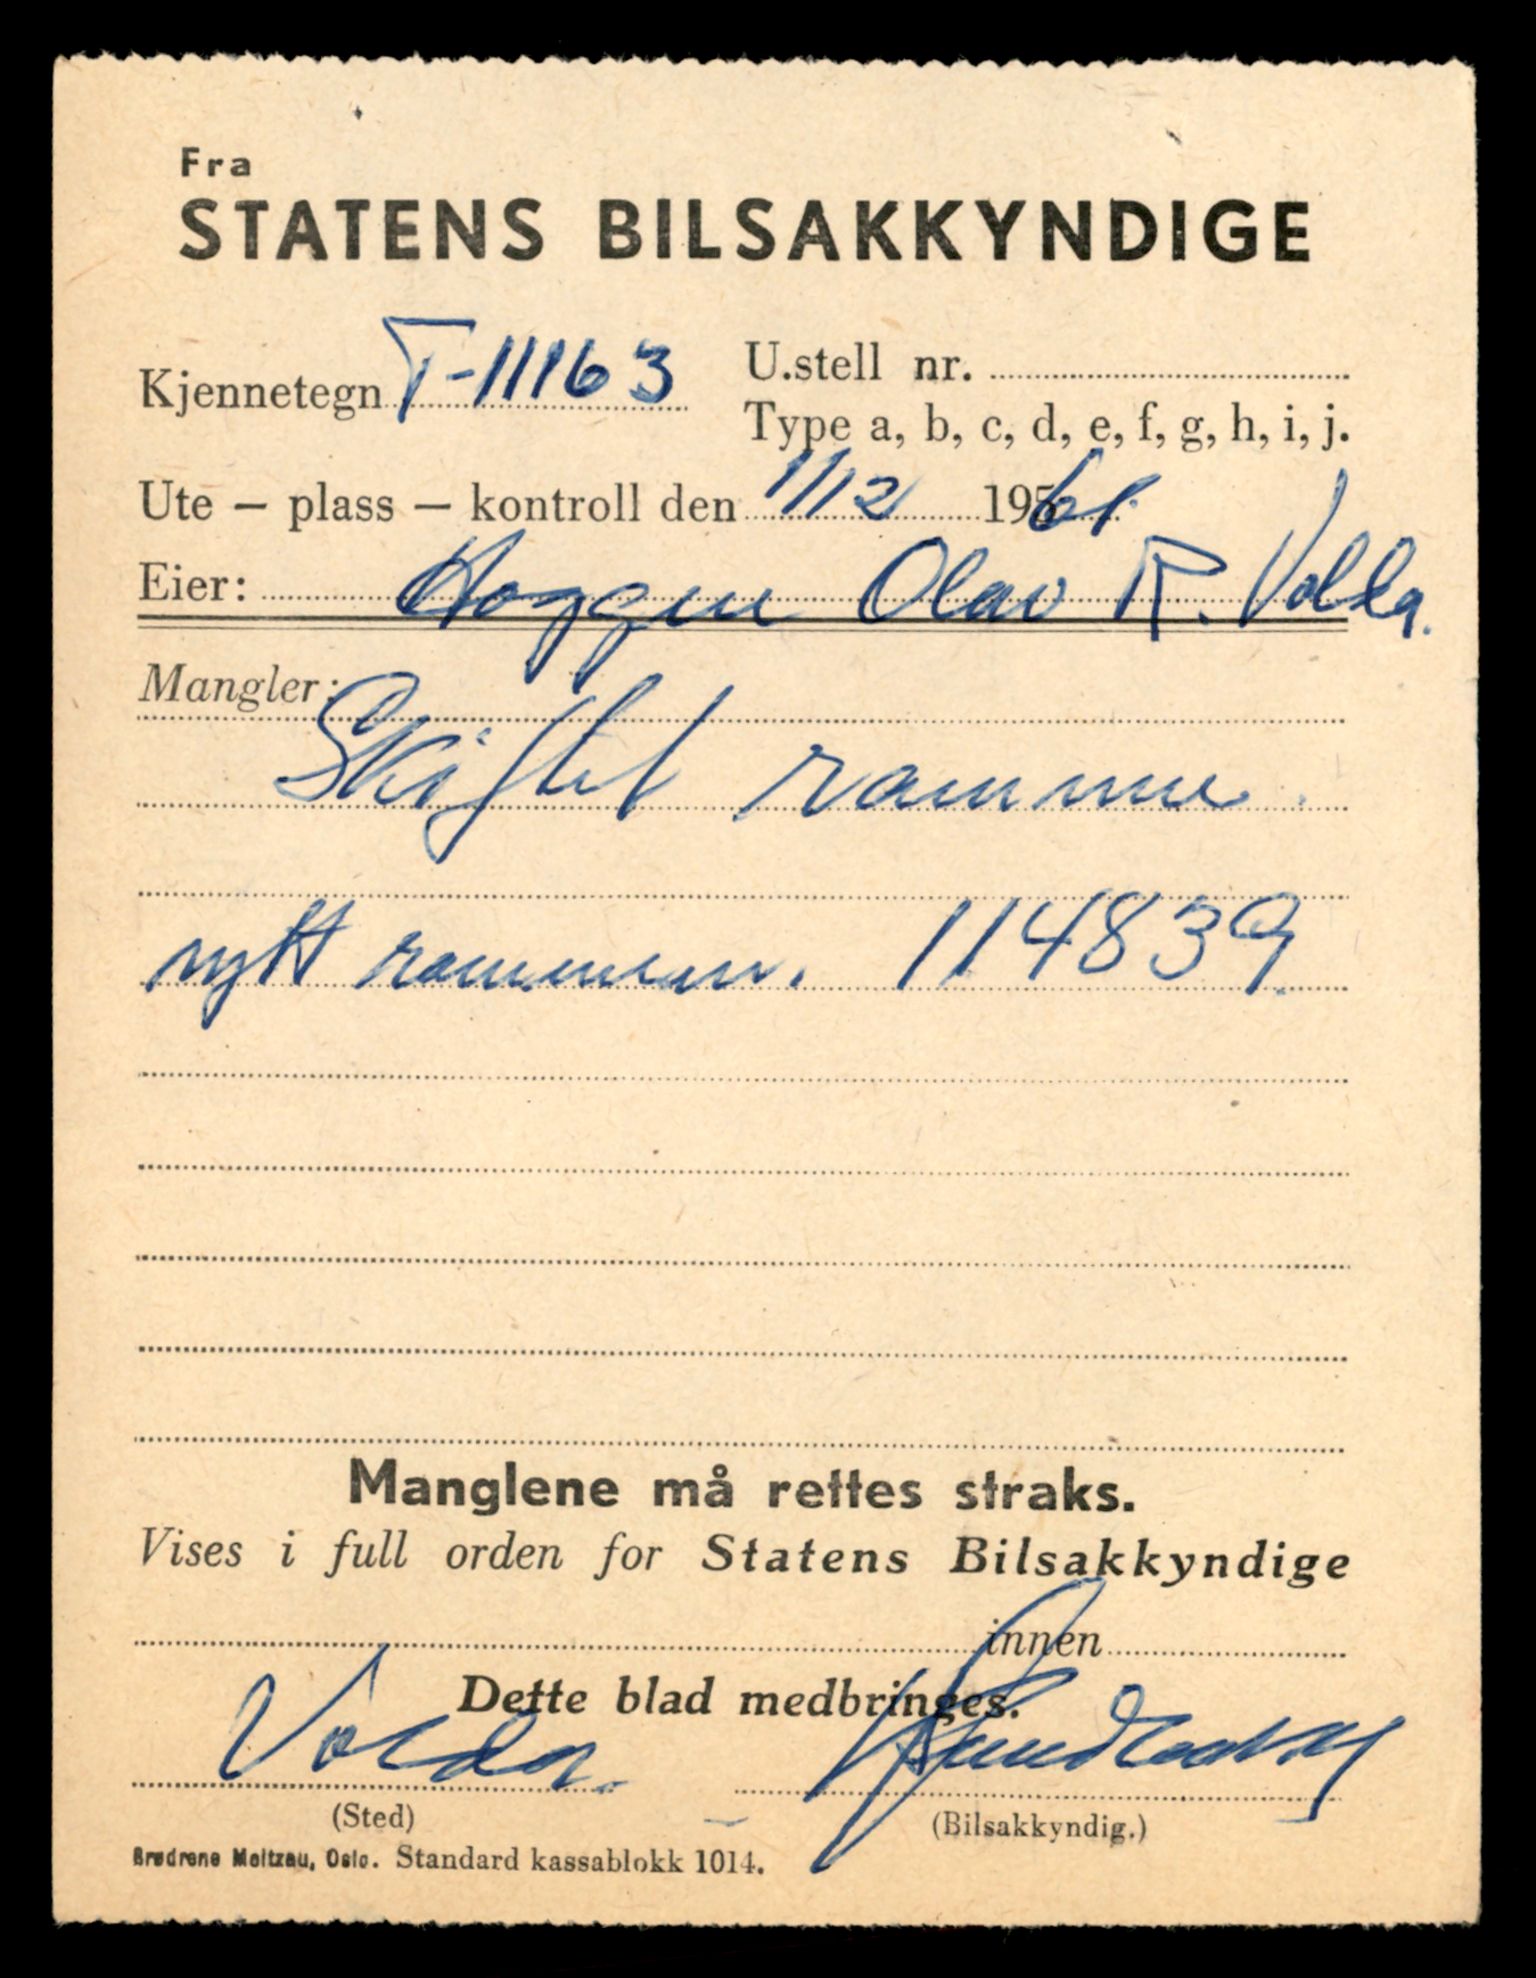 Fra
STATENS BILSAKKYNDIGE
Kjennetegn T-11163
U.stell nr.
Type a, b, c, d, e, f, g, h, i, j.
Ute – plass – kontroll den 1/12 1961.
Eier: Olav R. Volla.
Mangler:
Skiftet ramme.
nytt rammenr. 114839
Manglene må rettes straks.
Vises i full orden for Statens Bilsakkyndige
innen
Dette blad medbringes.
Volda.
(Sted)
(Bilsakkyndig.)
Brødrene Meltzau, Oslo. Standard kassablokk 1014.